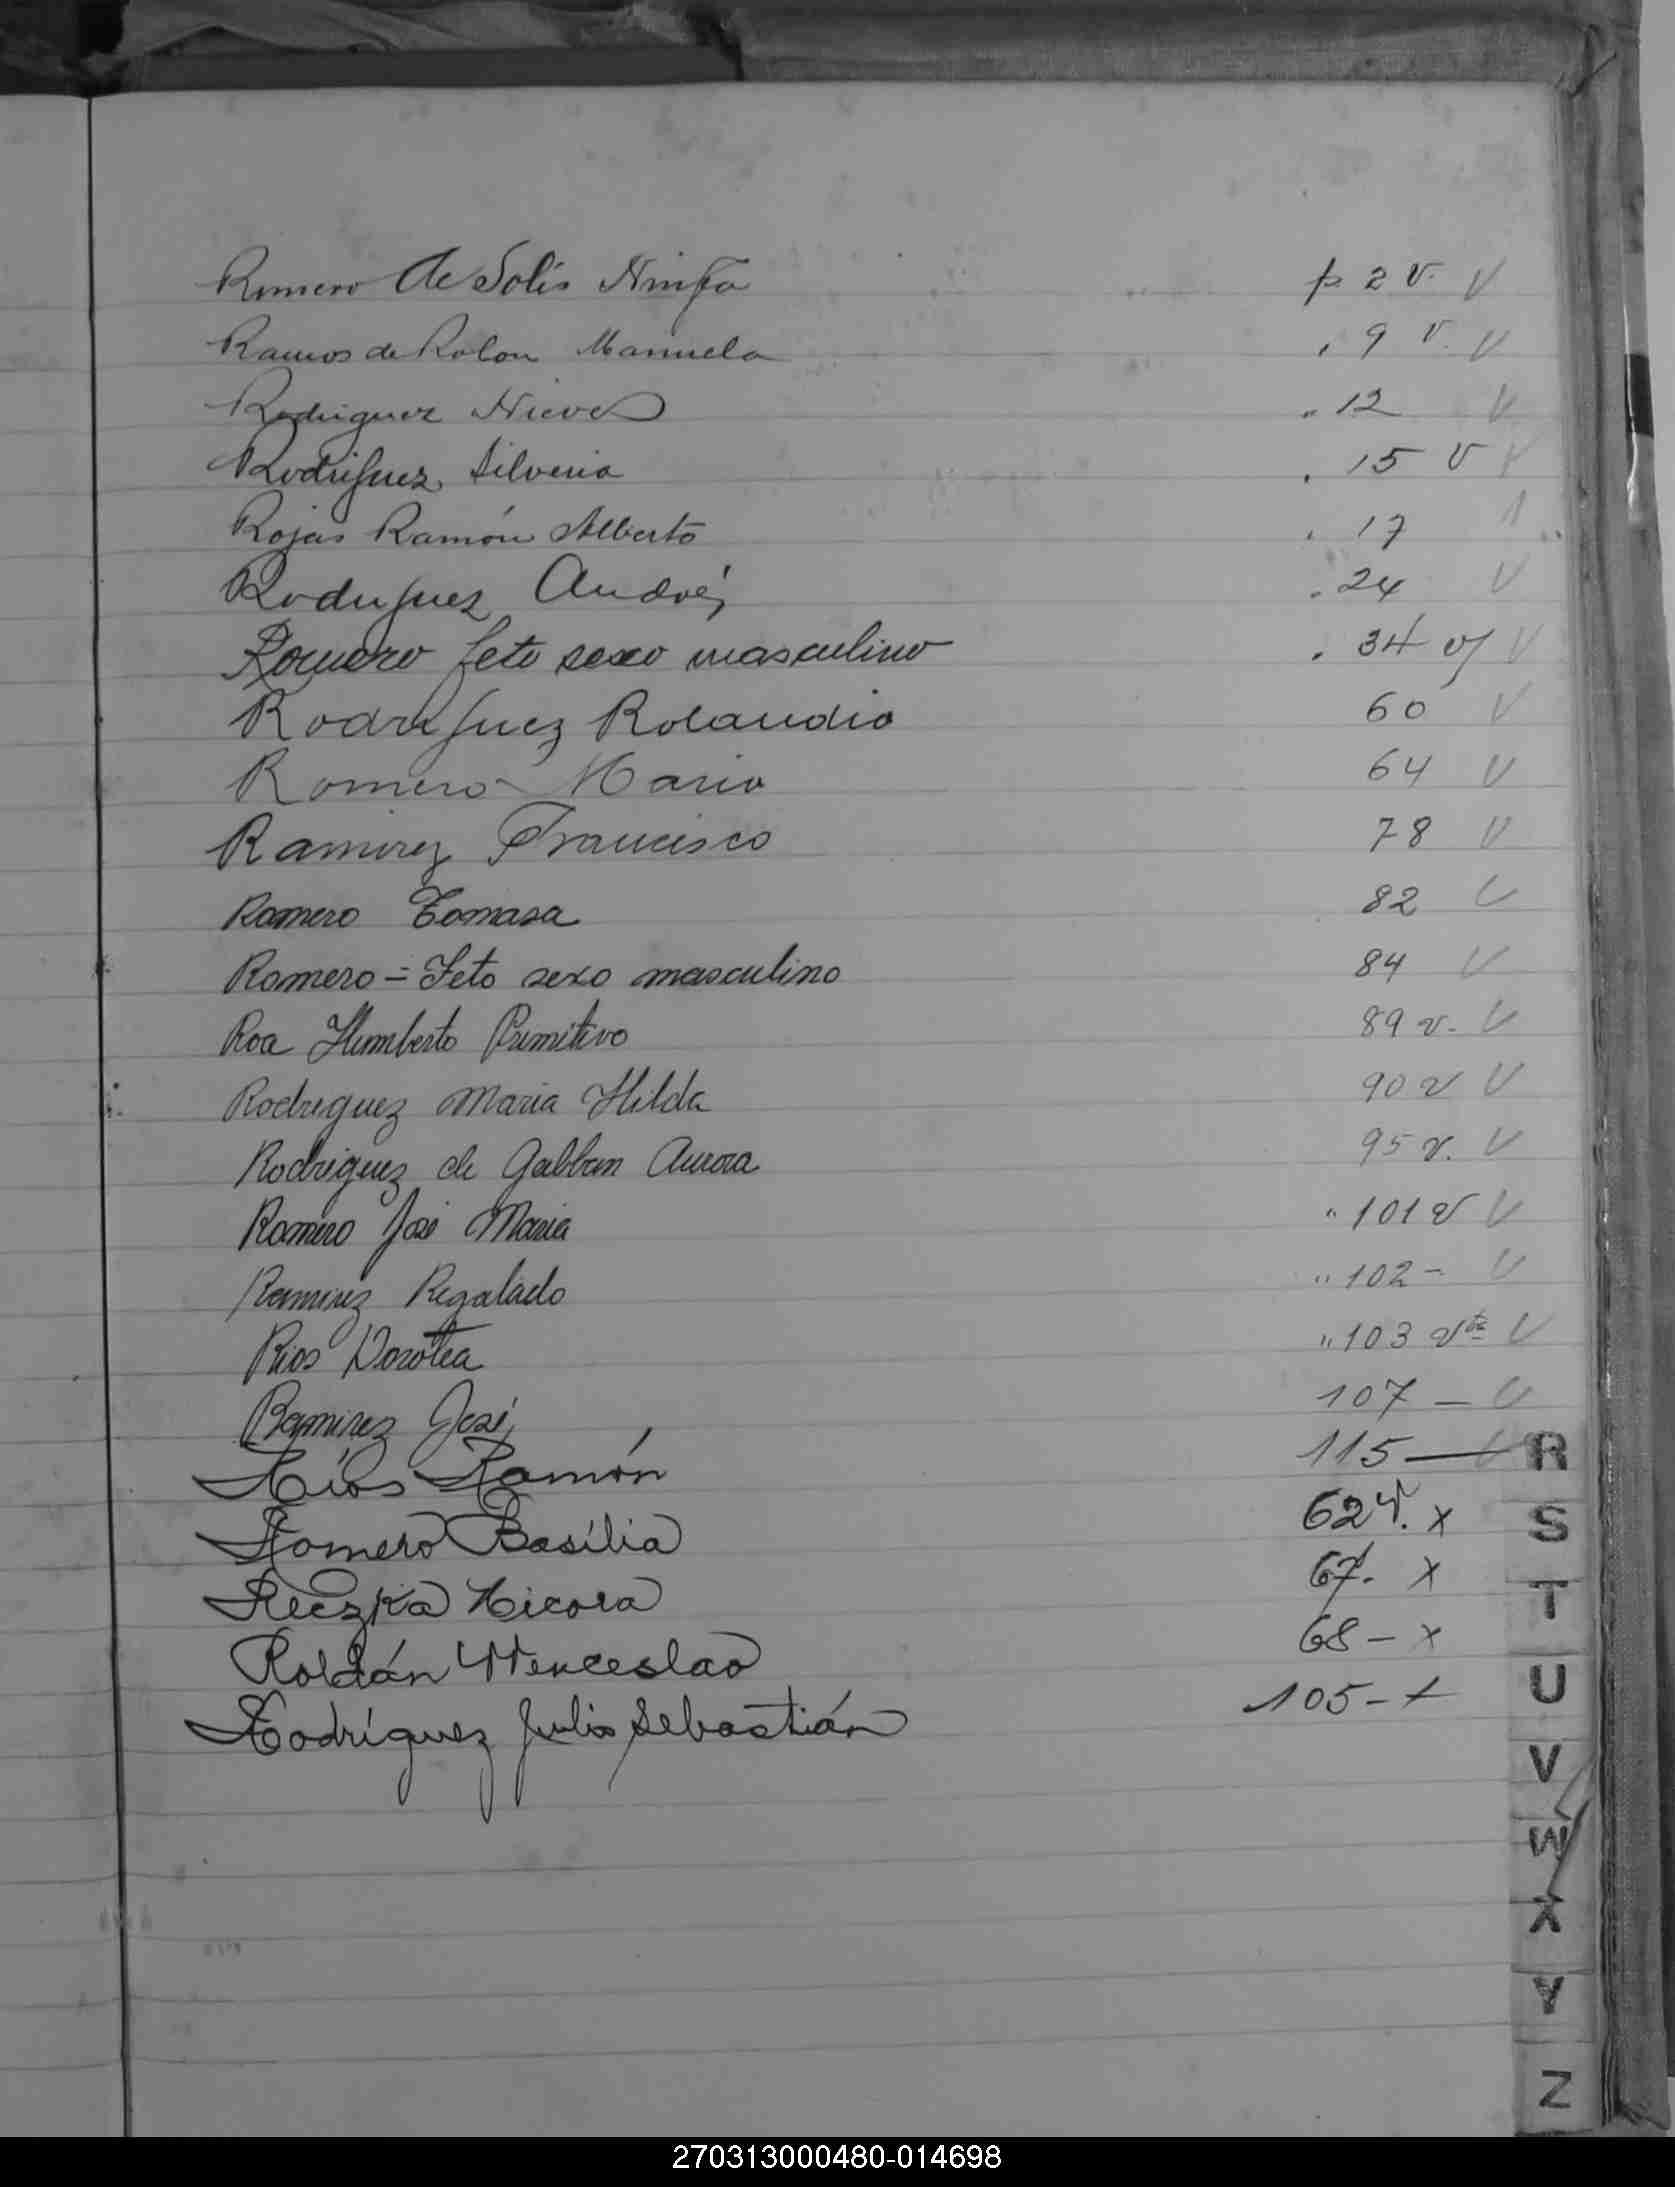 Romero de Solís Ninfa p. 2 v. V
Ramos de Rolon Manuela " 9 v. V
Rodriguez Nieves " 12 V
Rodriguez Silveria " 15 v V
Rojas Ramón Alberto " 17
Rodriguez Andrés " 24 V
Romero feto sexo masculino " 34 v V
Rodriguez Rolandio 60 V
Romero Maria 64 V
Ramirez Francisco 78 V
Romero Tomasa 82 V
Romero = Feto sexo masculino 84 V
Roa Humberto Primitivo 89 v. V
Rodriguez Maria Hilda 90 v V
Rodriguez de Gabban Aurora 95 v. V
Romero José Maria " 101 v V
Ramirez Regalado " 102 - V
Rios Dorotea " 103 vta V
Ramirez José 107 - V
Ríos Ramón 115 — V
Romero Basília 62 v. x
Reczka Nicora 67. x
Roldán Wenceslao 68 - x
Rodríguez Julio Sebastián 105 - x
R
S
T
U
V
W
X
Y
Z
270313000480-014698